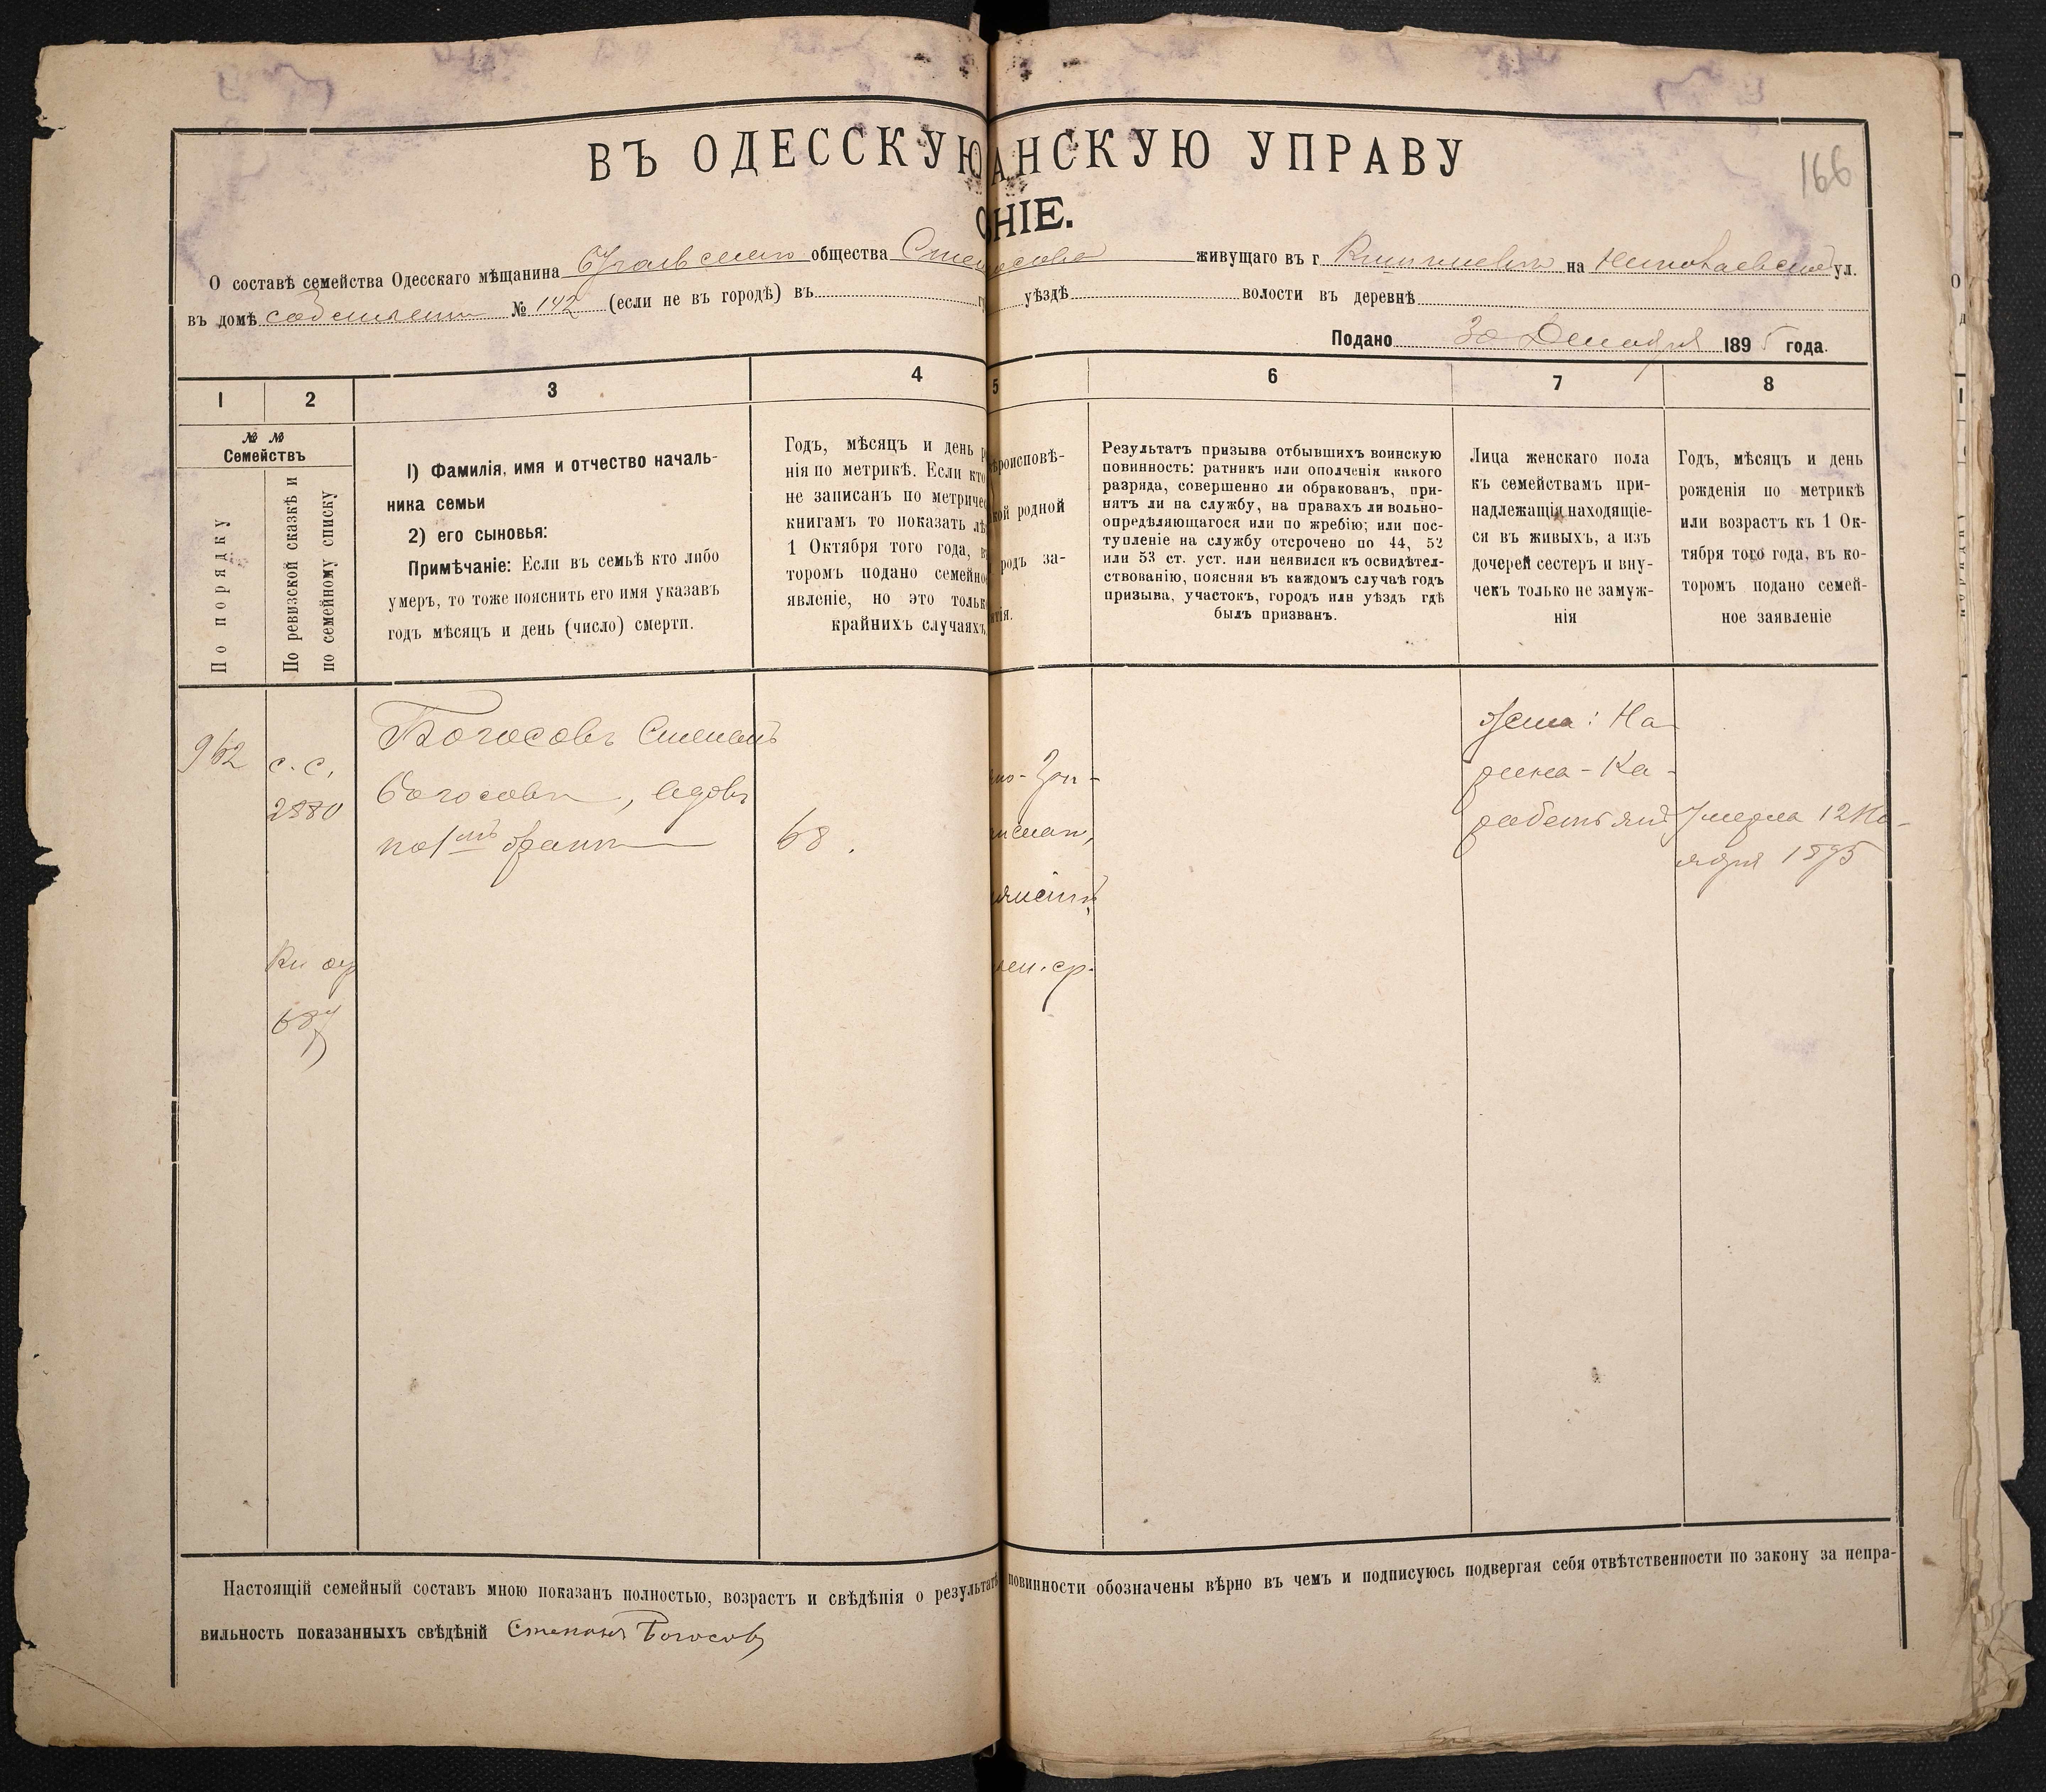 ВЪ ОДЕССКУЮ АНСКУЮ УПРАВУ
166
НІЕ.
О составѣ семейства Одесскаго мѣщанина общества живущаго въ г Кишиневѣ на Николаевской ул.
въ домѣ собственномъ № 142 (если не въ городѣ) въ уѣздѣ волости въ деревнѣ
Подано 30 Декабря 1895 года.
1 2 3 4 5 6 7 8
№ №
Семействъ
По порядку
По ревизской сказкѣ и
по семейному списку
1) Фамилія, имя и отчество началь-
ника семьи
2) его сыновья:
Примѣчаніе: Если въ семьѣ кто либо
умеръ, то тоже пояснить его имя указавъ
годъ мѣсяцъ и день (число) смерти.
Годъ, мѣсяцъ и день р
нія по метрикѣ. Если кто
не записанъ по метричес
книгамъ то показать лѣ
1 Октября того года, в
торомъ подано семейно
явленіе, но это тольк
крайнихъ случаяхъ
ѣроисповѣ-
кой родной
родъ за-
нія.
Результатъ призыва отбывшихъ воинскую
повинность: ратникъ или ополченія какого
разряда, совершенно ли обракованъ, при-
нятъ ли на службу, на правахъ ли вольно-
опредѣляющагося или по жребію; или пос-
тупленіе на службу отсрочено по 44, 52
или 53 ст. уст. или неявился къ освидѣтел-
ствованію, поясняя въ каждомъ случаѣ годъ
призыва, участокъ, городъ или уѣздъ гдѣ
былъ призванъ.
Лица женскаго пола
къ семействамъ при-
надлежащія находящіе-
ся въ живыхъ, а изъ
дочерей сестеръ и вну-
чекъ только не замуж-
нія
Годъ, мѣсяцъ и день
рожденія по метрикѣ
или возрастъ къ 1 Ок-
тября того года, въ ко-
торомъ подано семей-
ное заявленіе
962
с. с.
2880
Богосовъ Степанъ
Богосовъ, вдовъ
по 1мъ бракѣ
68.
жена: На-
рина-Ка-
Умерла 12 Но-
ября 1895
687
Настоящій семейный составъ мною показанъ полностью, возрастъ и свѣдѣнія о результатѣ повинности обозначены вѣрно въ чемъ и подписуюсь подвергая себя отвѣтственности по закону за непра-
вильность показанныхъ свѣдѣній Степанъ Богосовъ